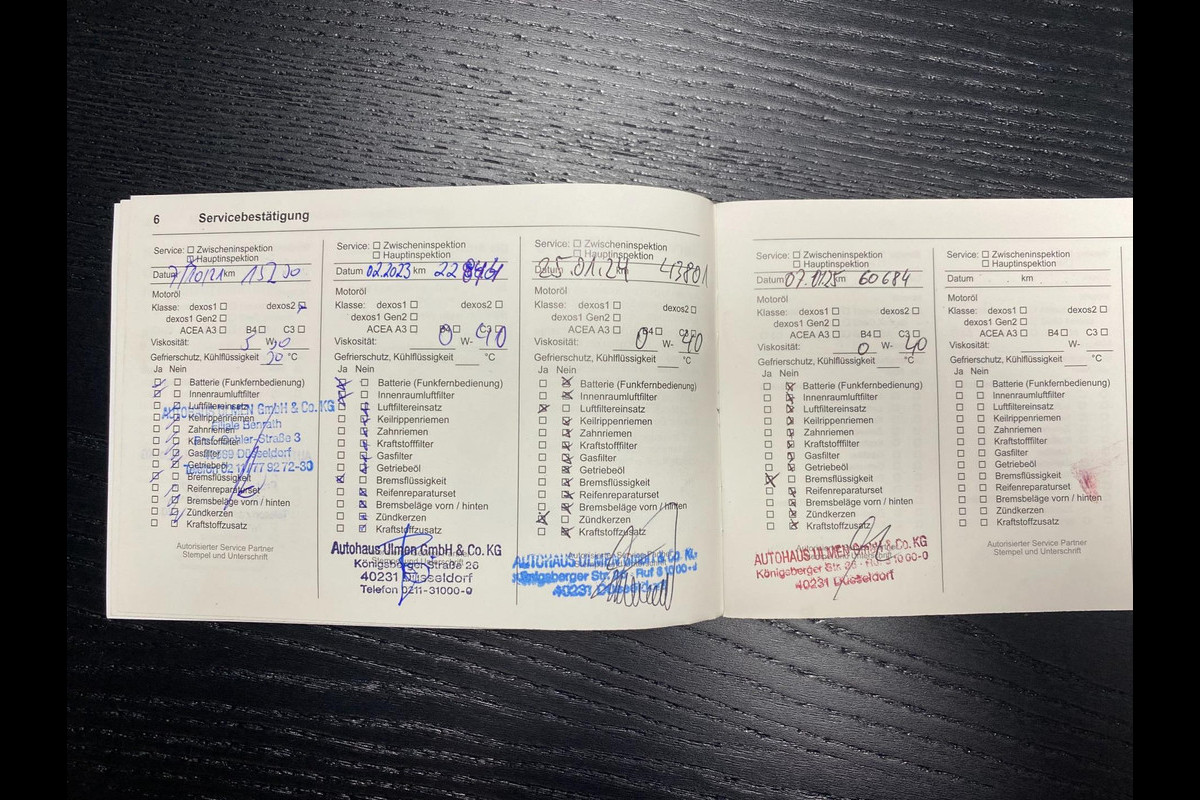 6 Servicebestätigung
Service: Zwischeninspektion
Hauptinspektion
Datum 7/10/21 km
Motoröl
Klasse: dexos1 dexos2
dexos1 Gen2
ACEA A3 B4 C3
Viskosität: 5 W- 30
Gefrierschutz, Kühlflüssigkeit 30 °C
Ja Nein
Batterie (Funkfernbedienung)
Innenraumluftfilter
Luftfiltereinsatz
Keilrippenriemen
Zahnriemen
Kraftstofffilter
Gasfilter
Getriebeöl
Bremsflüssigkeit
Reifenreparaturset
Bremsbeläge vorn / hinten
Zündkerzen
Kraftstoffzusatz
AUTOHAUS ULMEN GmbH & Co. KG
Filiale Benrath
Straße 3
Düsseldorf
Telefon 02 11/77 92 72-30
Autorisierter Service Partner
Stempel und Unterschrift
Service: Zwischeninspektion
Hauptinspektion
Datum 02.2023 km
Motoröl
Klasse: dexos1 dexos2
dexos1 Gen2
ACEA A3 B4 C3
Viskosität: 0 W- 40
Gefrierschutz, Kühlflüssigkeit °C
Ja Nein
Batterie (Funkfernbedienung)
Innenraumluftfilter
Luftfiltereinsatz
Keilrippenriemen
Zahnriemen
Kraftstofffilter
Gasfilter
Getriebeöl
Bremsflüssigkeit
Reifenreparaturset
Bremsbeläge vorn / hinten
Zündkerzen
Kraftstoffzusatz
Autohaus Ulmen GmbH & Co. KG
Königsberger Straße 26
40231 Düsseldorf
Telefon 0211-31000-0
Service: Zwischeninspektion
Hauptinspektion
Datum 25.01.24 km 43801
Motoröl
Klasse: dexos1 dexos2
dexos1 Gen2
ACEA A3 B4 C3
Viskosität: 0 W- 40
Gefrierschutz, Kühlflüssigkeit °C
Ja Nein
Batterie (Funkfernbedienung)
Innenraumluftfilter
Luftfiltereinsatz
Keilrippenriemen
Zahnriemen
Kraftstofffilter
Gasfilter
Getriebeöl
Bremsflüssigkeit
Reifenreparaturset
Bremsbeläge vorn / hinten
Zündkerzen
Kraftstoffzusatz
AUTOHAUS ULMEN GmbH & Co. KG
Königsberger Str. Ruf 3 10 00-0
40231 Düsseldorf
Service: Zwischeninspektion
Hauptinspektion
Datum 07.01.25 km 60684
Motoröl
Klasse: dexos1 dexos2
dexos1 Gen2
ACEA A3 B4 C3
Viskosität: 0 W- 40
Gefrierschutz, Kühlflüssigkeit °C
Ja Nein
Batterie (Funkfernbedienung)
Innenraumluftfilter
Luftfiltereinsatz
Keilrippenriemen
Zahnriemen
Kraftstofffilter
Gasfilter
Getriebeöl
Bremsflüssigkeit
Reifenreparaturset
Bremsbeläge vorn / hinten
Zündkerzen
Kraftstoffzusatz
AUTOHAUS ULMEN GmbH & Co. KG
Königsberger Str. Ruf 3 10 00-0
40231 Düsseldorf
Service: Zwischeninspektion
Hauptinspektion
Datum km
Motoröl
Klasse: dexos1 dexos2
dexos1 Gen2
ACEA A3 B4 C3
Viskosität: W-
Gefrierschutz, Kühlflüssigkeit °C
Ja Nein
Batterie (Funkfernbedienung)
Innenraumluftfilter
Luftfiltereinsatz
Keilrippenriemen
Zahnriemen
Kraftstofffilter
Gasfilter
Getriebeöl
Bremsflüssigkeit
Reifenreparaturset
Bremsbeläge vorn / hinten
Zündkerzen
Kraftstoffzusatz
Autorisierter Service Partner
Stempel und Unterschrift